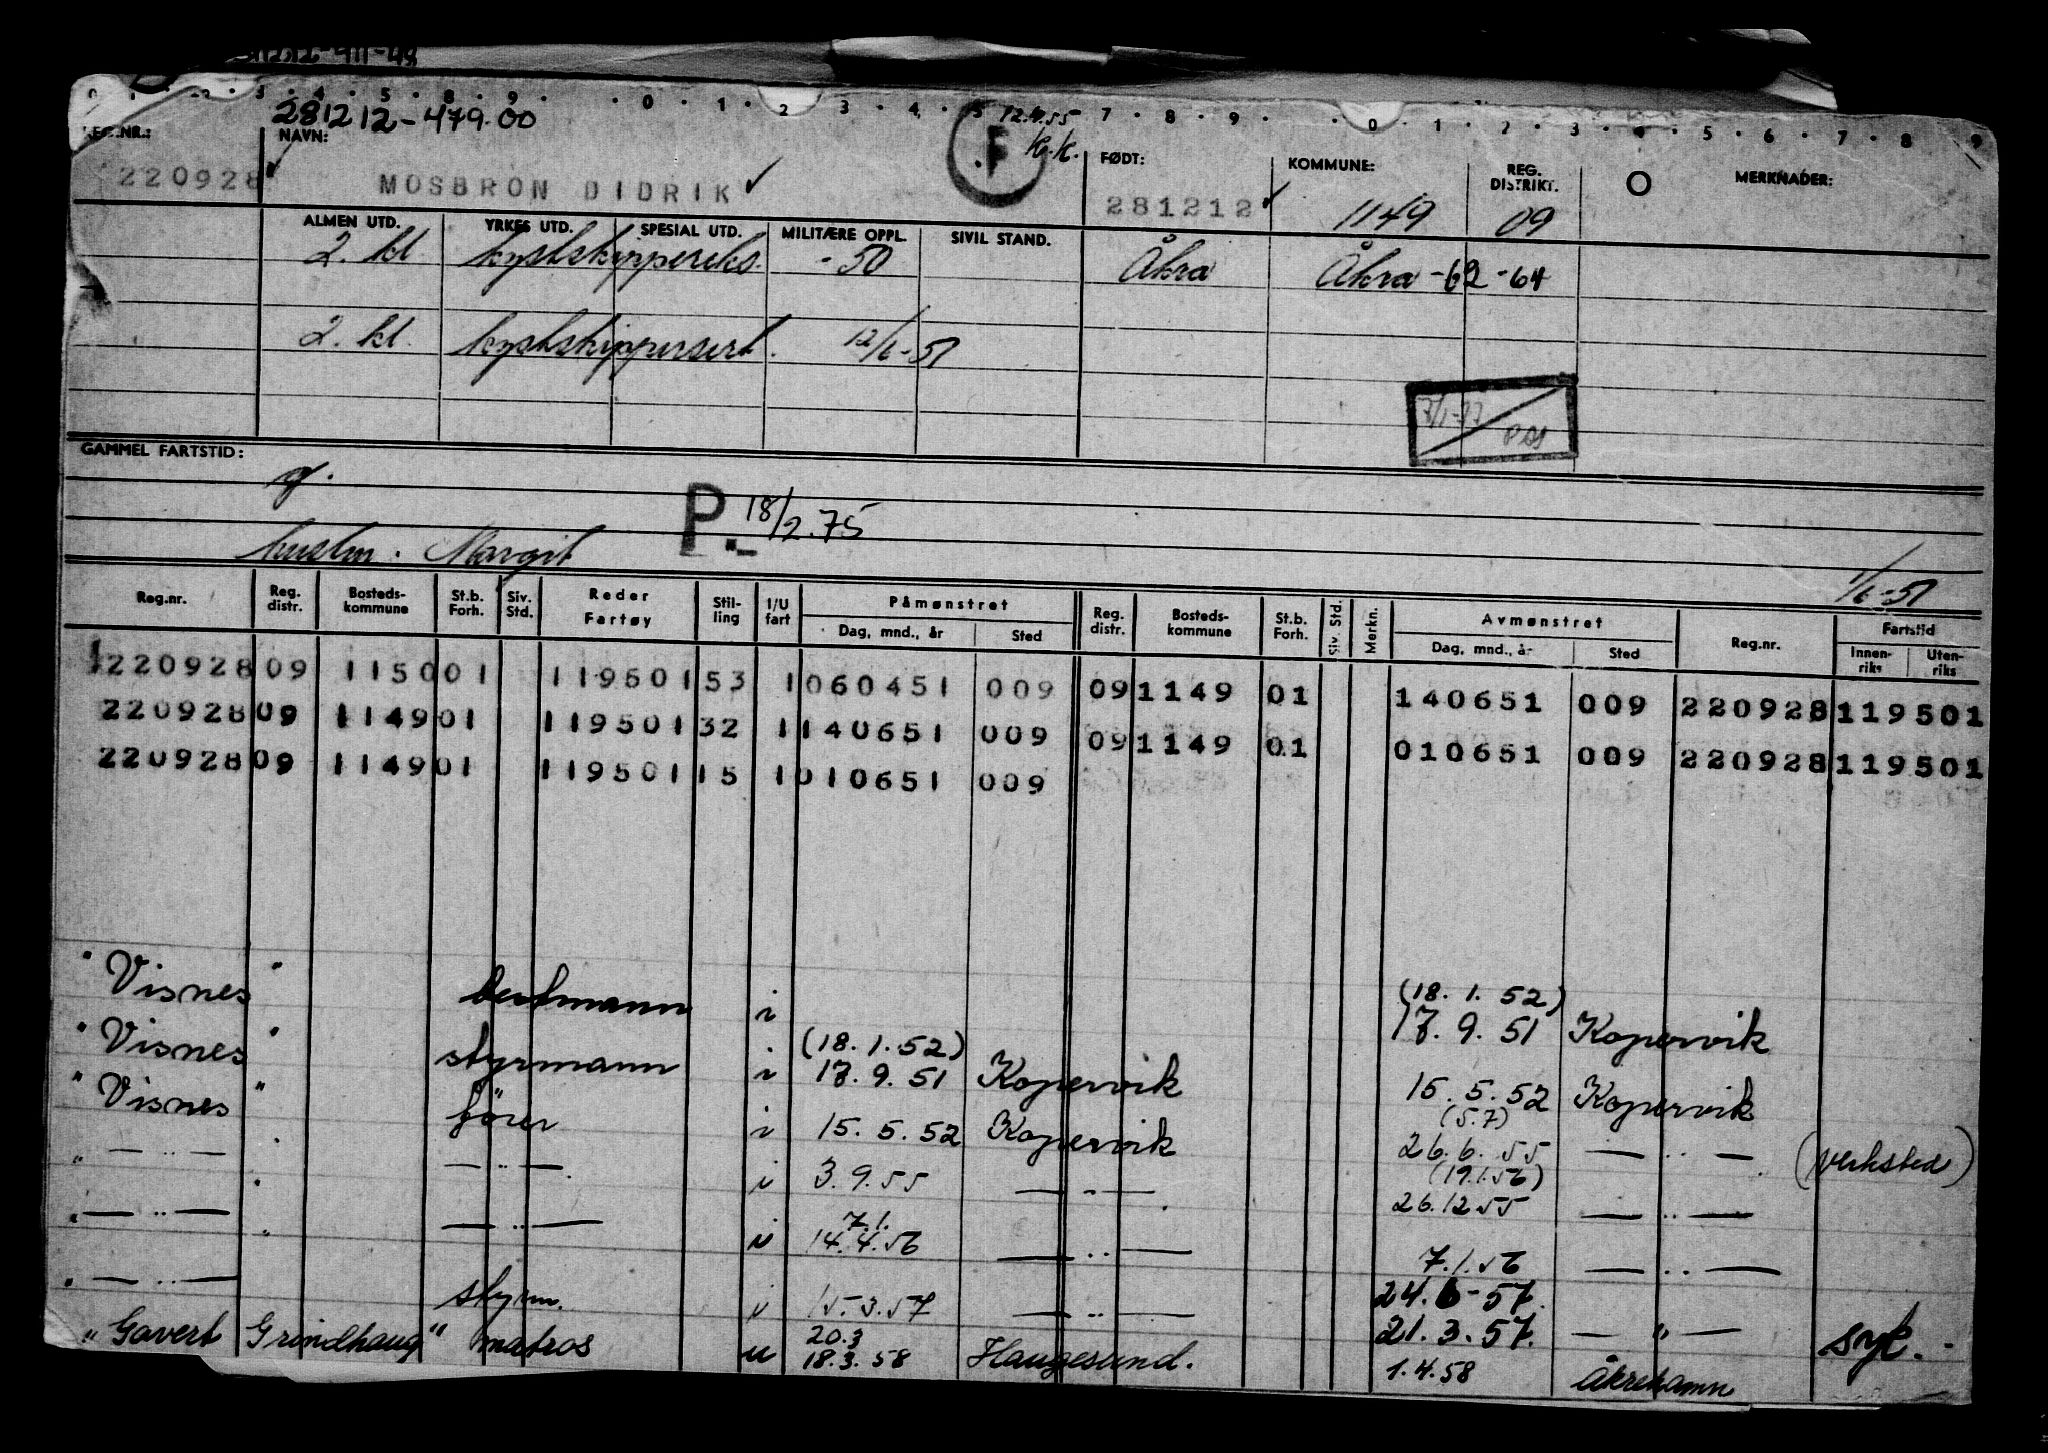 0 1 2 3 4 5 8 9 0 1 2 3 4 5 7 8 9 0 1 2 3 4 5 6 7 8 9
281212-479.00
12.4.55
F k.k.
REG.NR.: NAVN: FØDT: KOMMUNE: REG. DISTRIKT. MERKNADER:
220928 MOSBRON DIDRIK 281212 1149 09
ALMEN UTD. YRKES UTD. SPESIAL UTD. MILITÆRE OPPL. SIVIL STAND.
2. kl. kystskippereks. -50 Åkra Åkra -62 -64
2. kl. kystskippersert. 12/6-51
7/1-77
GAMMEL FARTSTID:
g.
P. 18/2.75
hustru. Margit
1/6-51
Reg.nr. Reg. distr. Bostedskommune St.b. Forh. Siv. Std. Reder Fartøy Stilling I/U fart Påmønstret Dag, mnd., år Sted Reg. distr. Bostedskommune St.b. Forh. Siv. Std. Merkn. Avmønstret Dag, mnd., år Sted Reg.nr. Fartstid Innenriks Utenriks
220928 09 1150 01 119501 53 1 060451 009 09 1149 01 140651 009 220928 119501
220928 09 1149 01 119501 32 1 140651 009 09 1149 01 010651 009 220928 119501
220928 09 1149 01 119501 15 1 010651 009
" Visnes " bestmann i (18.1.52) 17.9.51 Kopervik
" Visnes " styrmann i (18.1.52) 17.9.51 Kopervik 15.5.52 Kopervik
" Visnes " fører i 15.5.52 Kopervik (5.7) 26.6.55 — .. — (verksted)
" — .. — " — .. — i 3.9.55 — .. — (19.1.56) 26.12.55 — .. —
" — .. — " — .. — i 7.1. 14.4.56 — .. — 7.1.56 — .. —
" — .. — styrm. i 15.3.57 — .. — 24.6-57. 21.3.57. — " — syk.
"Govert Grindhaug" matros u 20.3 18.3.58 Haugesund. 1.4.58 Åkrehamn